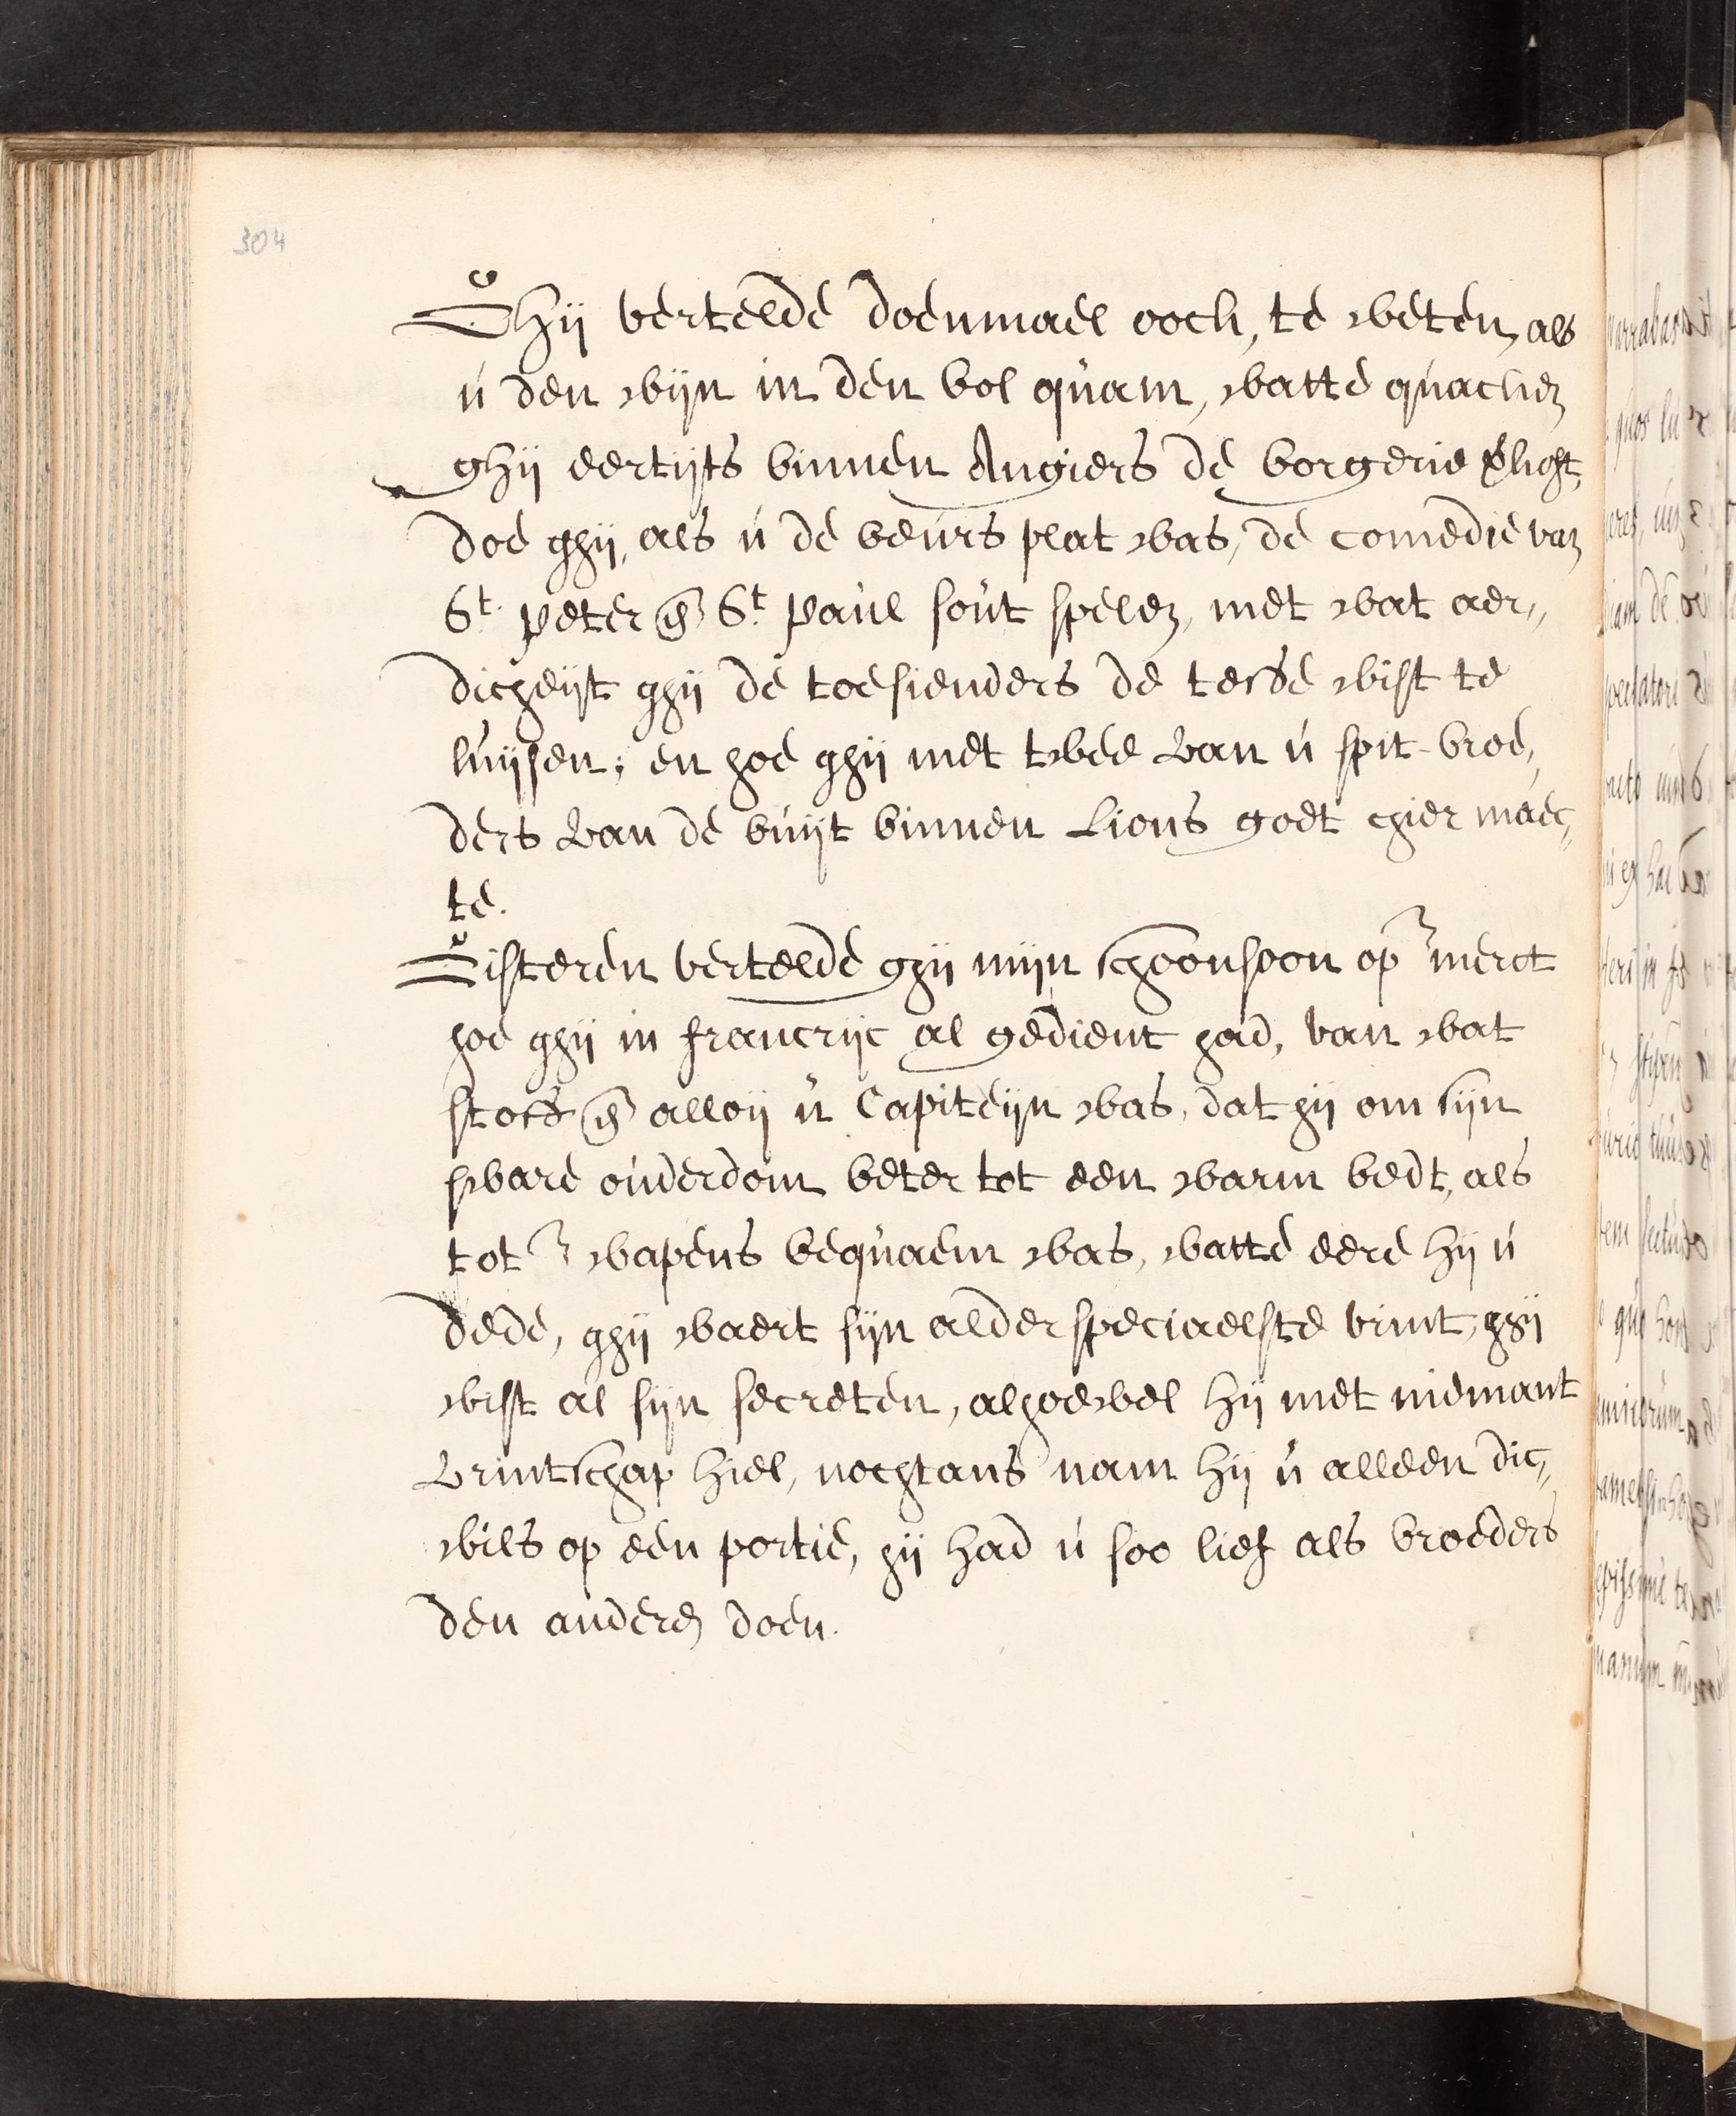 304
Ghij vertelde doenmael ooch, te weten, als
ú den wijn in den bol qúam, watte qúachen
ghij eertijts binnen Angiers de borgerie
doe ghij, als ú de beúrs plat was, de comedie van
St. Peter en St. Paúl soút spelen, met wat aer„
dicheijt ghij de toesienders de tesse wist te
lúijsen; en hoe ghij met twee van ú spit-broe„
ders van de búijt binnen Lions goet chier maec„
te.
Gisteren vertelde ghij mijn schoonsoon op merct
hoe ghij in francrijc al gedient had, van wat
stoffe en alloij ú Capiteijn was, dat hij om sijn
sware oúderdom beter tot een warm bedt, als
tot wapens beqúaem was, watte eere hij ú
dede, ghij waert sijn alder speciaelste vrint, ghij
wist al sijn secreten, alhoewel hij met niemant
vrintschap hiel, nochtans nam hij ú alleen dic„
wils op een portie, hij had ú soo lief als broeders
den anderen doen.